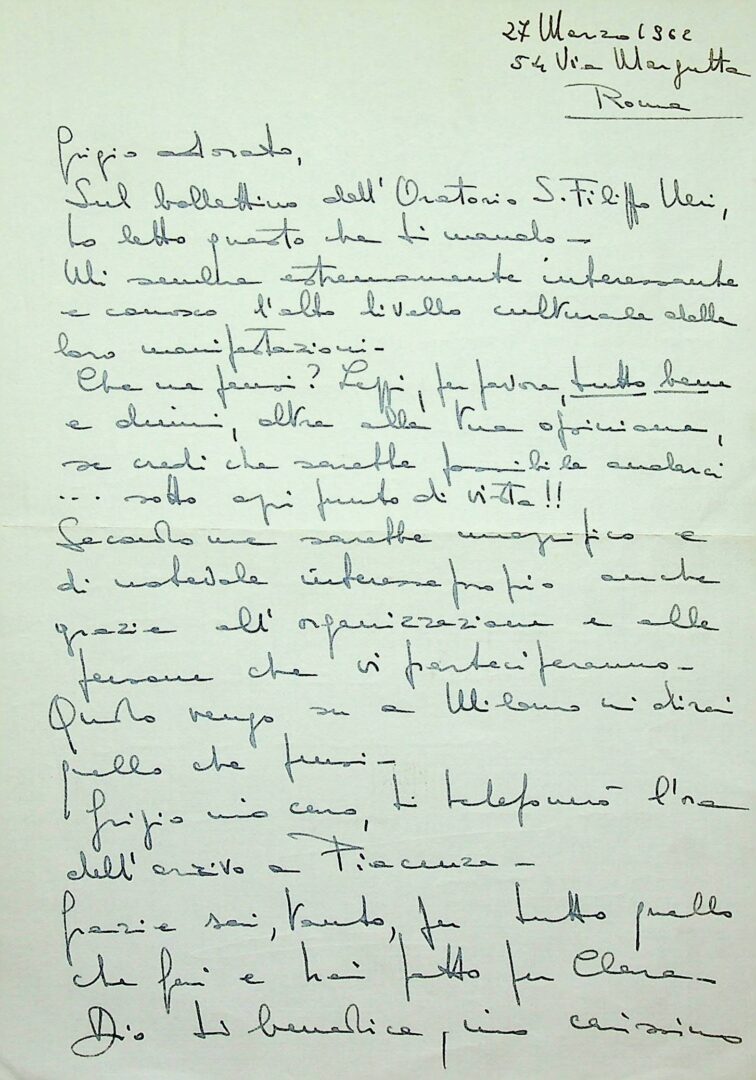 27 Marzo 1962
54 Via Margutta
Roma
Grigio adorato,
Sul bollettino dell' Oratorio S. Filippo Neri,
ho letto questo che ti mando -
Mi sembra estremamente interessante
e conosco l'alto livello culturale delle
loro manifestazioni -
Che ne pensi? Leggi, per favore, tutto bene
e dimmi, oltre alla tua opinione,
se credi che sarebbe possibile andarci
... sotto ogni punto di vista!!
Secondo me sarebbe magnifico e
di notevole interesse proprio anche
grazie all' organizzazione e alle
persone che vi parteciperanno -
Quando vengo su a Milano mi dirai
quello che pensi -
Grigio mio caro, ti telefonerò l'ora
dell' arrivo a Piacenza -
Grazie sai, tanto, per tutto quello
che fai e hai fatto per Clara -
Dio ti benedica, mio carissimo